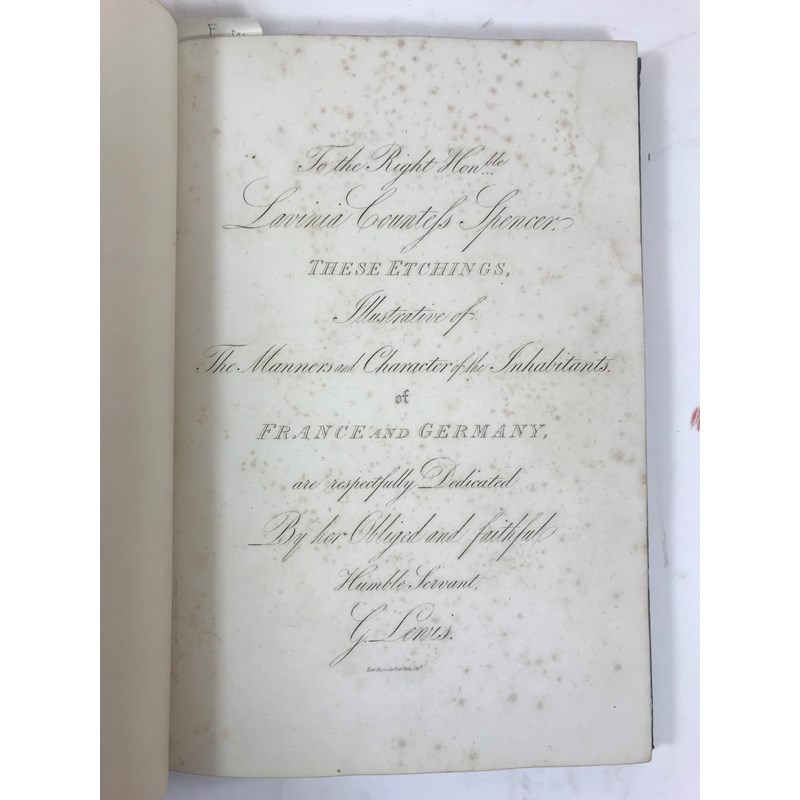 To the Right Honble
Lavinia Countess Spencer.
THESE ETCHINGS,
Illustrative of
The Manners and Character of the Inhabitants,
of
FRANCE AND GERMANY,
are respectfully Dedicated
By her Obliged and faithful
Humble Servant.
G. Lewis.